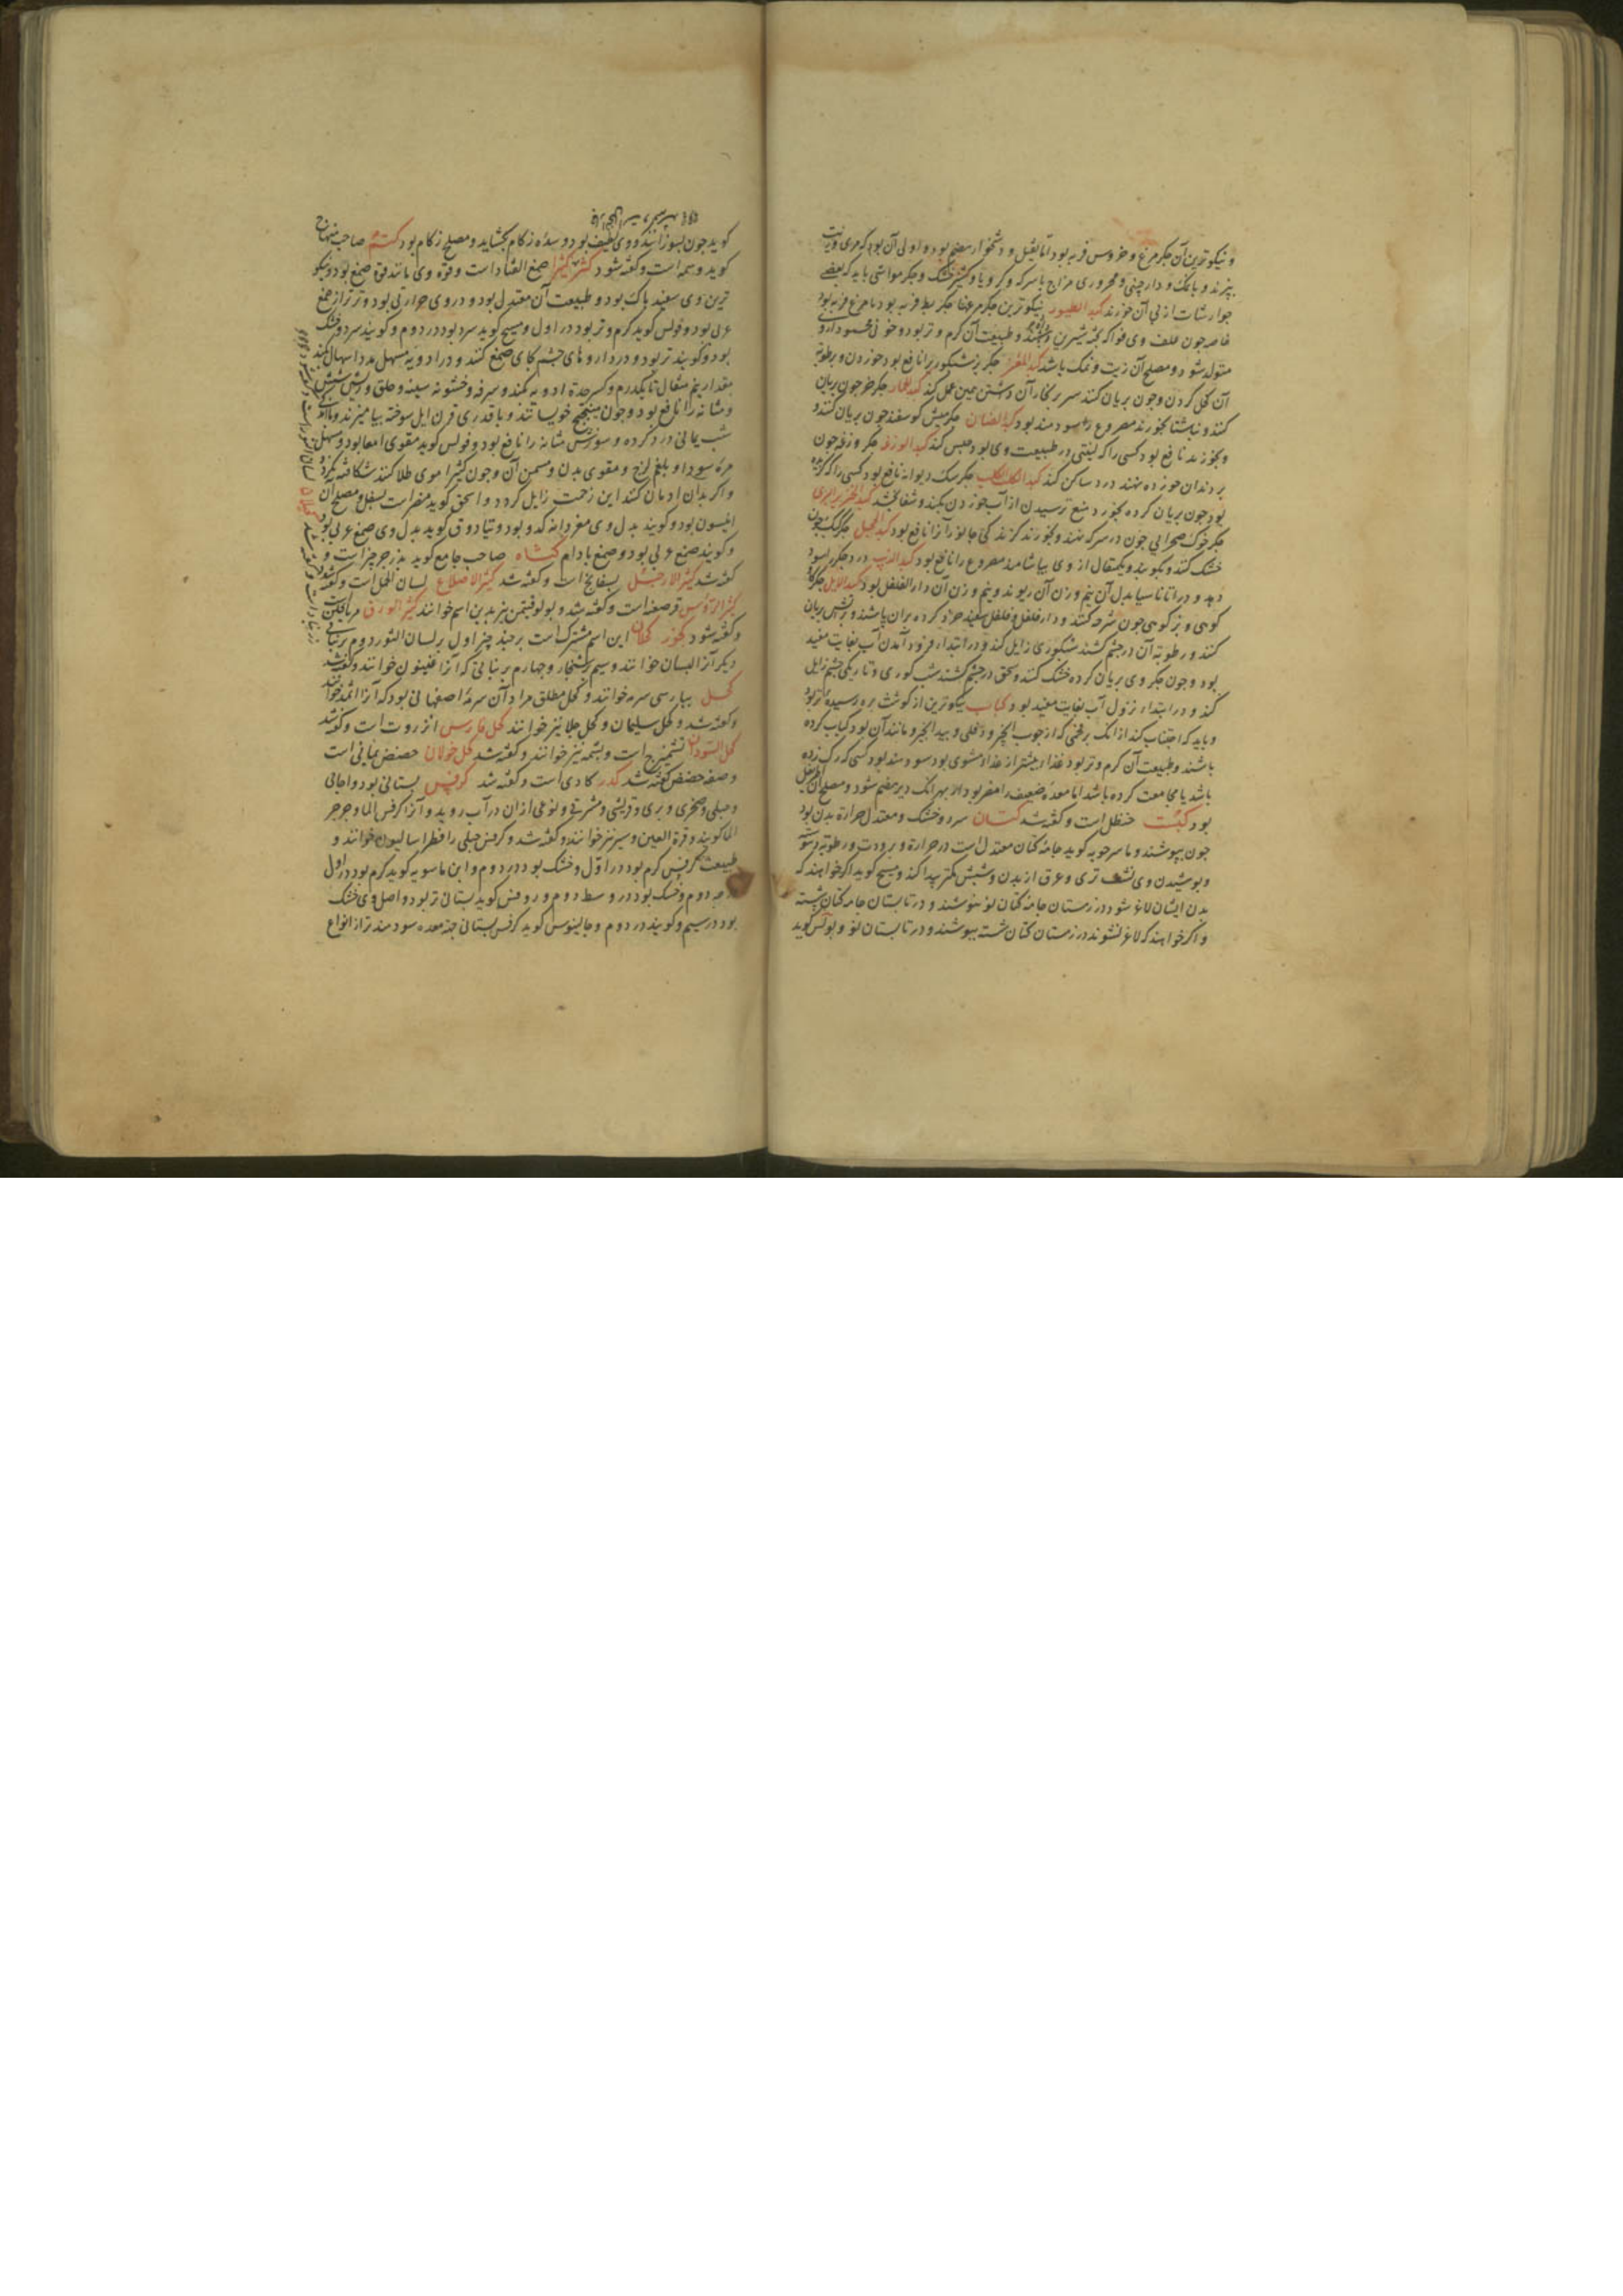 و نیکوترین آن جکر مرغ و خروس فربه بود اما ثقیل و دشخوار هضم بود و اولی آن بود که مری و زیت
بپزند و بانمک و دارچینی و محروری مزاج باسرکه و کرویا و کشنیز خشک و جکر مواشی باید که بعضی
جوارشات از پی آن خورند کبد الطیور نیکوترین جکر مرغها جکر بط فربه بود یا مرغ فربه بود
خاصه چون علف وی فواکه پخته شیرین و طبیعت آن کرم و تر بود و خونی محمود از وی
متولد شود و مصلح آن زیت و نمک باشد کبد المعز جکر بز شبکور را نافع بود خوردن و برطوبه
آن کحل کردن و چون بریان کنند سر بر بخار آن داشتن همین عمل کند کبد الحمار جکر خر چون بریان
کنند و ناشتا بخورند مصروع را سودمند بود کبد الضان جکر میش کوسفند چون بریان کنند و
و بخورند نافع بود کسی را که لینتی در طبیعت وی بود حبس کند کبد الورغه جکر وزغه چون
بر دندان خورده نهند درد ساکن کند کبد الکلب الکلب جکر سک دیوانه نافع بود کسی را که کزیده
بود چون بریان کرده بخورد منع ترسیدن از آب خوردن بکند و شفا بخشد کبد الخنزیر البری
جکر خوک صحرایی چون در سرکه نهند و بخورند کزندکی جانور آنرا نافع بود کبد الحجل جکر کبک چون
خشک کنند و بکوبند و یکمثقال از وی بیاشامند مصروع را نافع بود کبد الذیب درد جکر را سود
دهد و در اناناسیا بدل آن نیم وزن آن ریوند و نیم وزن آن دار الفلفل بود کبد الایل جکر کاو
کوهی و بز کوهی چون شرحه کنند و دار فلفل و فلفل سفید خرد کرده بران پاشند و بر آتش بریان
کنند و رطوبة آن در چشم کشند شبکوری زایل کند و در ابتداء فرود آمدن آب بغایت مفید
بود و چون جکر وی بریان کرده خشک کنند و سحق در چشم کشند شب کوری و تاریکی چشم زایل
کند و در ابتداء نزول آب بغایت مفید بود کباب نیکوترین از کوشت بره رسیده تر بود
و باید که اجتناب کند از آنک بر فحمی که از چوب انجیر و دفلی و بید انجیر و مانند آن بود کباب کرده
باشند و طبیعت آن کرم و تر بود غذا بیشتر از غذاء مشوی بود سودمند بود کسی که رک زده
باشد یا مجامعت کرده باشد اما معدة ضعیف را مضر بود از بهر آنک دیر هضم شود و مصلح آن
بود کبست حنظل است و کفته شد کتان سرد و خشک و معتدل حرارة بدن بود
چون بپوشند و ماسرجویه کوید جامه کتان معتدل است در حرارة و برودت و رطوبة و یبوست
و پوشیدن وی نشف تری و عرق از بدن و شپش کمتر پیدا کند و مسیح کوید اکر خواهند که
بدن ایشان لاغر شود در زمستان جامه کتان نو پوشند و در تابستان جامه کتان شسته
و اکر خواهند که لاغر نشوند در زمستان کتان شسته بپوشند و در تابستان نو و بولس کوید
کوید چون بسوزانند دود وی لطیف بود و سده زکام بکشاید و مصلح زکام بود کتم صاحب منهاج
کوید وسمه است و کفته شود کثیرا صمغ القتاد است و قوة وی مانند قوة صمغ بود و نیکو
ترین وی سفید پاک بود و طبیعت آن معتدل بود و در وی حرارتی بود و تر تر از صمغ
عربی بود و فولس کوید کرم و تر بود در اول و مسیح کوید سرد بود در دوم و کویند سرد و خشک
بود و کویند تر بود و در داروهای چشم بجای صمغ کنند و در ادویه مسهل مدد اسهال کند
مقدار نیم مثقال تا یکدرم و کسر حدة ادویه بکند و سرفه و خشونه سینه و حلق و ریش شش
و مثانه را نافع بود و چون بمیبختج خویسانند و با قدری قرن ایل سوخته بیامیزند و با اندکی
شب یمانی درد کرده و سوزش مثانه را نافع بود و فولس کوید مقوی امعا بود و مسهل
مرة سودا و بلغم لزج و مقوی بدن و مسمن آن و چون کثیرا موی طلا کنند شکافته نکردد
و اکر بدان ادمان کنند این زحمت زایل کردد و اسحق کوید مضر است بسفل و مصلح آن
انیسون بود و کویند بدل وی مغز دانه کدو بود و تیادوق کوید بدل وی صمغ عربی بود
و کویند صمغ عربی بود و صمغ بادام کثاه صاحب جامع کوید بزر جرجیر است و
کفته شد کثیر الارجل بسفایج است و کفته شد کثیر الاضلاع لسان الحمل است و کفته شد
کثیر الرؤس قرصعنه است و کفته شد و بولوقینمن نیز بدین اسم خوانند کثیر الورق مریافلن است
و کفته شود کحلان این اسم مشترک است بر چند چیز اول بر لسان الثور دوم بر نباتی
دیکر آنرا لبسان خوانند و سیم بر شنجار و چهارم بر نباتی که آنرا قلینون خوانند و کفته شد
کحل بپارسی سرمه خوانند و کحل مطلق مراد آن سرمه اصفهانی بود که آنرا اثمد خوانند
و کفته شد و کحل سلیمان و کحل جلا نیز خوانند کحل فارس انزروت است و کفته شد
کحل السودان تشمیزج است و بشمه نیز خوانند و کفته شد کحل خولان حضض یمانی است
و صفه حضض کفته شد کدر کادی است و کفته شد کرفس بستانی بود و اجامی
و جبلی و صخری و بری و قریشی و مشرقی و نوعی از ان در آب روید و آنرا کرفس الما و جرجر
الما کویند و قرة العین و سیر نیز خوانند و کفته شد و کرفس جبلی را فطراسالیون خوانند و
طبیعت کرفس کرم بود در اول و خشک بود در دوم و ابن ماسویه کوید کرم بود در اول
درجه دوم و خشک بود در وسط دوم و روفس کوید بستانی تر بود و اصل وی خشک
بود در سیم و کویند در دوم و جالینوس کوید کرفس بستانی جهة معده سودمندتر از انواع